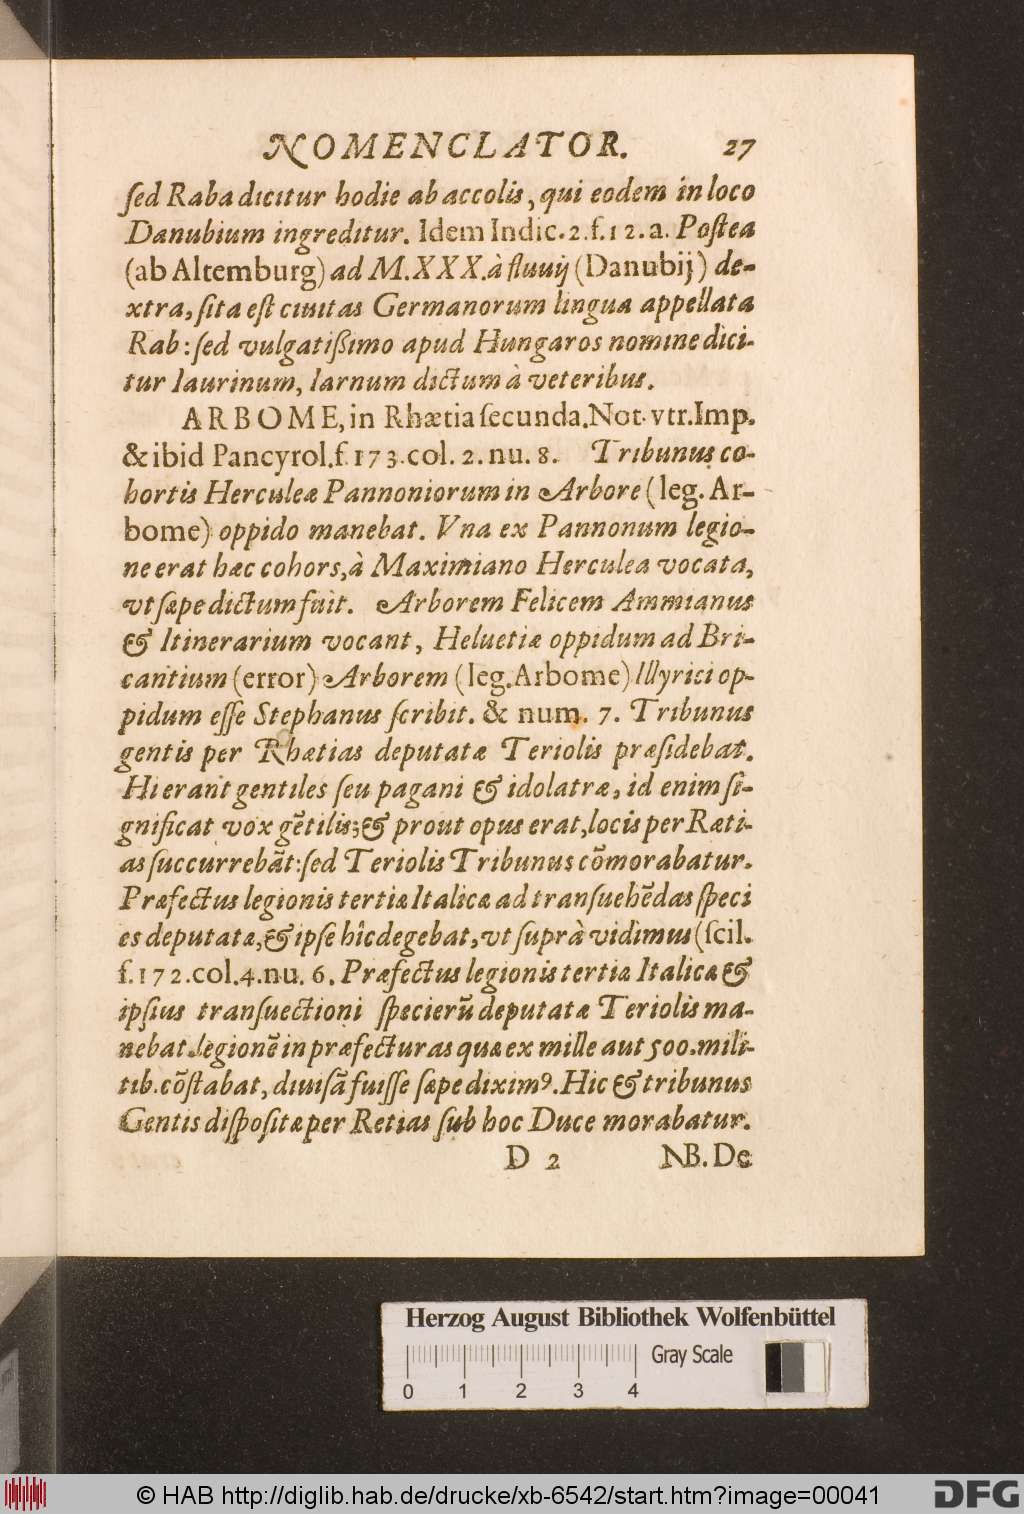 NOMENCLATOR. 27
ſed Raba dicitur hodie ab accolis, qui eodem in loco
Danubium ingreditur. Idem Indic. 2. f. 12. a. Poſtea
(ab Altemburg) ad M.XXX. à fluuij (Danubij) de-
xtra, ſita eſt ciuitas Germanorum lingua appellata
Rab: ſed vulgatißimo apud Hungaros nomine dici-
tur Iaurinum, Iarnum dictum à veteribus.
ARBOME, in Rhætia ſecunda. Not. vtr. Imp.
& ibid Pancyrol. f. 173. col. 2. nu. 8. Tribunus co-
hortis Herculeæ Pannoniorum in Arbore (leg. Ar-
bome) oppido manebat. Vna ex Pannonum legio-
ne erat hæc cohors, à Maximiano Herculea vocata,
vt ſæpe dictum fuit. Arborem Felicem Ammianus
& Itinerarium vocant, Heluetiæ oppidum ad Bri-
cantium (error) Arborem (leg. Arbome) Illyrici op-
pidum eſſe Stephanus ſcribit. & num. 7. Tribunus
gentis per Rhætias deputatæ Teriolis præſidebat.
Hi erant gentiles ſeu pagani & idolatræ, id enim ſi-
gnificat vox gẽtilis; & prout opus erat, locis per Ræti-
as ſuccurrebãt: ſed Teriolis Tribunus cõmorabatur.
Præfectus legionis tertiæ Italicæ ad tranſuehẽdas ſpeci
es deputatæ, & ipſe hîc degebat, vt ſuprà vidimus (ſcil.
f. 172. col. 4. nu. 6. Præfectus legionis tertiæ Italicæ &
ipſius tranſuectioni ſpecierũ deputatæ Teriolis ma-
nebat. legionẽ in præfecturas quæ ex mille aut 500. mili-
tib. cõſtabat, diuiſã fuiſſe ſæpe diximꝰ. Hic & tribunus
Gentis diſpoſitæ per Retias ſub hoc Duce morabatur.
D 2 NB. De
Herzog August Bibliothek Wolfenbüttel
Gray Scale
0 1 2 3 4
© HAB http://diglib.hab.de/drucke/xb-6542/start.htm?image=00041
DFG